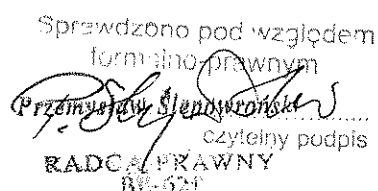 Sprawdzono pod względem
formalno-prawnym
Przemysław Ślepowroński
czytelny podpis
RADCA PRAWNY